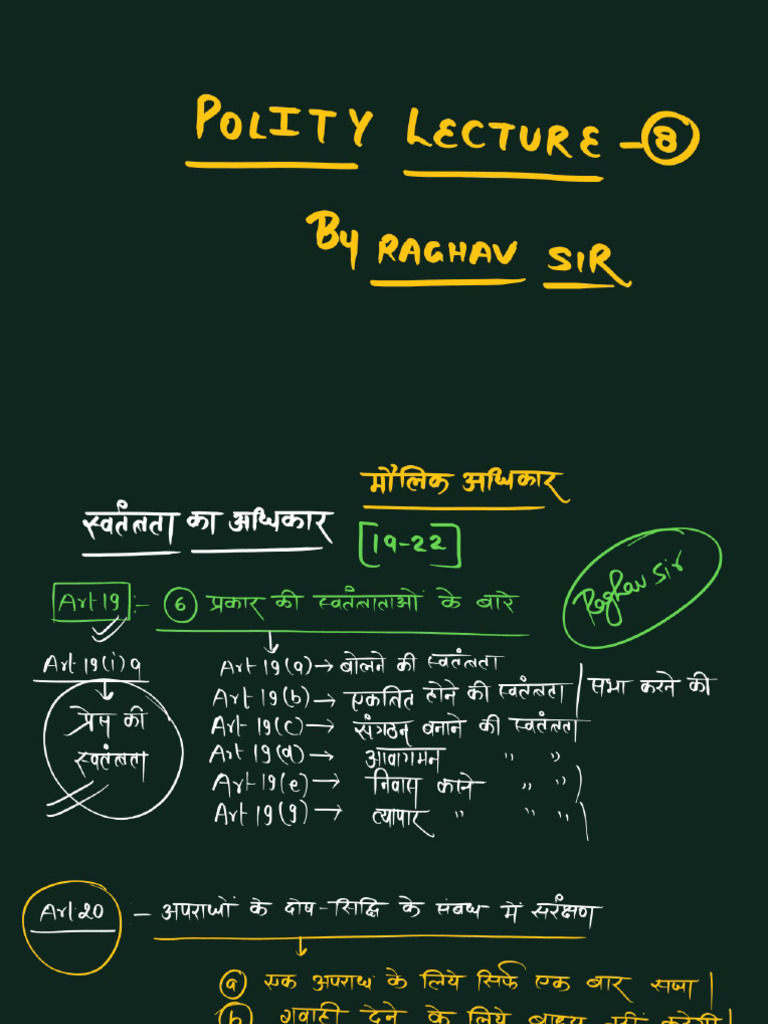 POLITY LECTURE - 8
By RAGHAV SIR
मौलिक अधिकार
स्वतंत्रता का अधिकार
[19-22]
Art 19 :- 6 प्रकार की स्वतंत्रताओं के बारे
Raghav sir
Art 19(i)a
प्रेस की
स्वतंत्रता
Art 19(a) → बोलने की स्वतंत्रता
Art 19(b) → एकत्रित होने की स्वतंत्रता / सभा करने की
Art 19(c) → संगठन बनाने की स्वतंत्रता
Art 19(d) → आवागमन " "
Art 19(e) → निवास करने " "
Art 19(g) → व्यापार " " "
Art 20 - अपराधों के दोष-सिद्धि के संबंध में संरक्षण
(a) एक अपराध के लिये सिर्फ एक बार सजा |
(b) गवाही देने के लिये बाध्य नहीं करेगी |